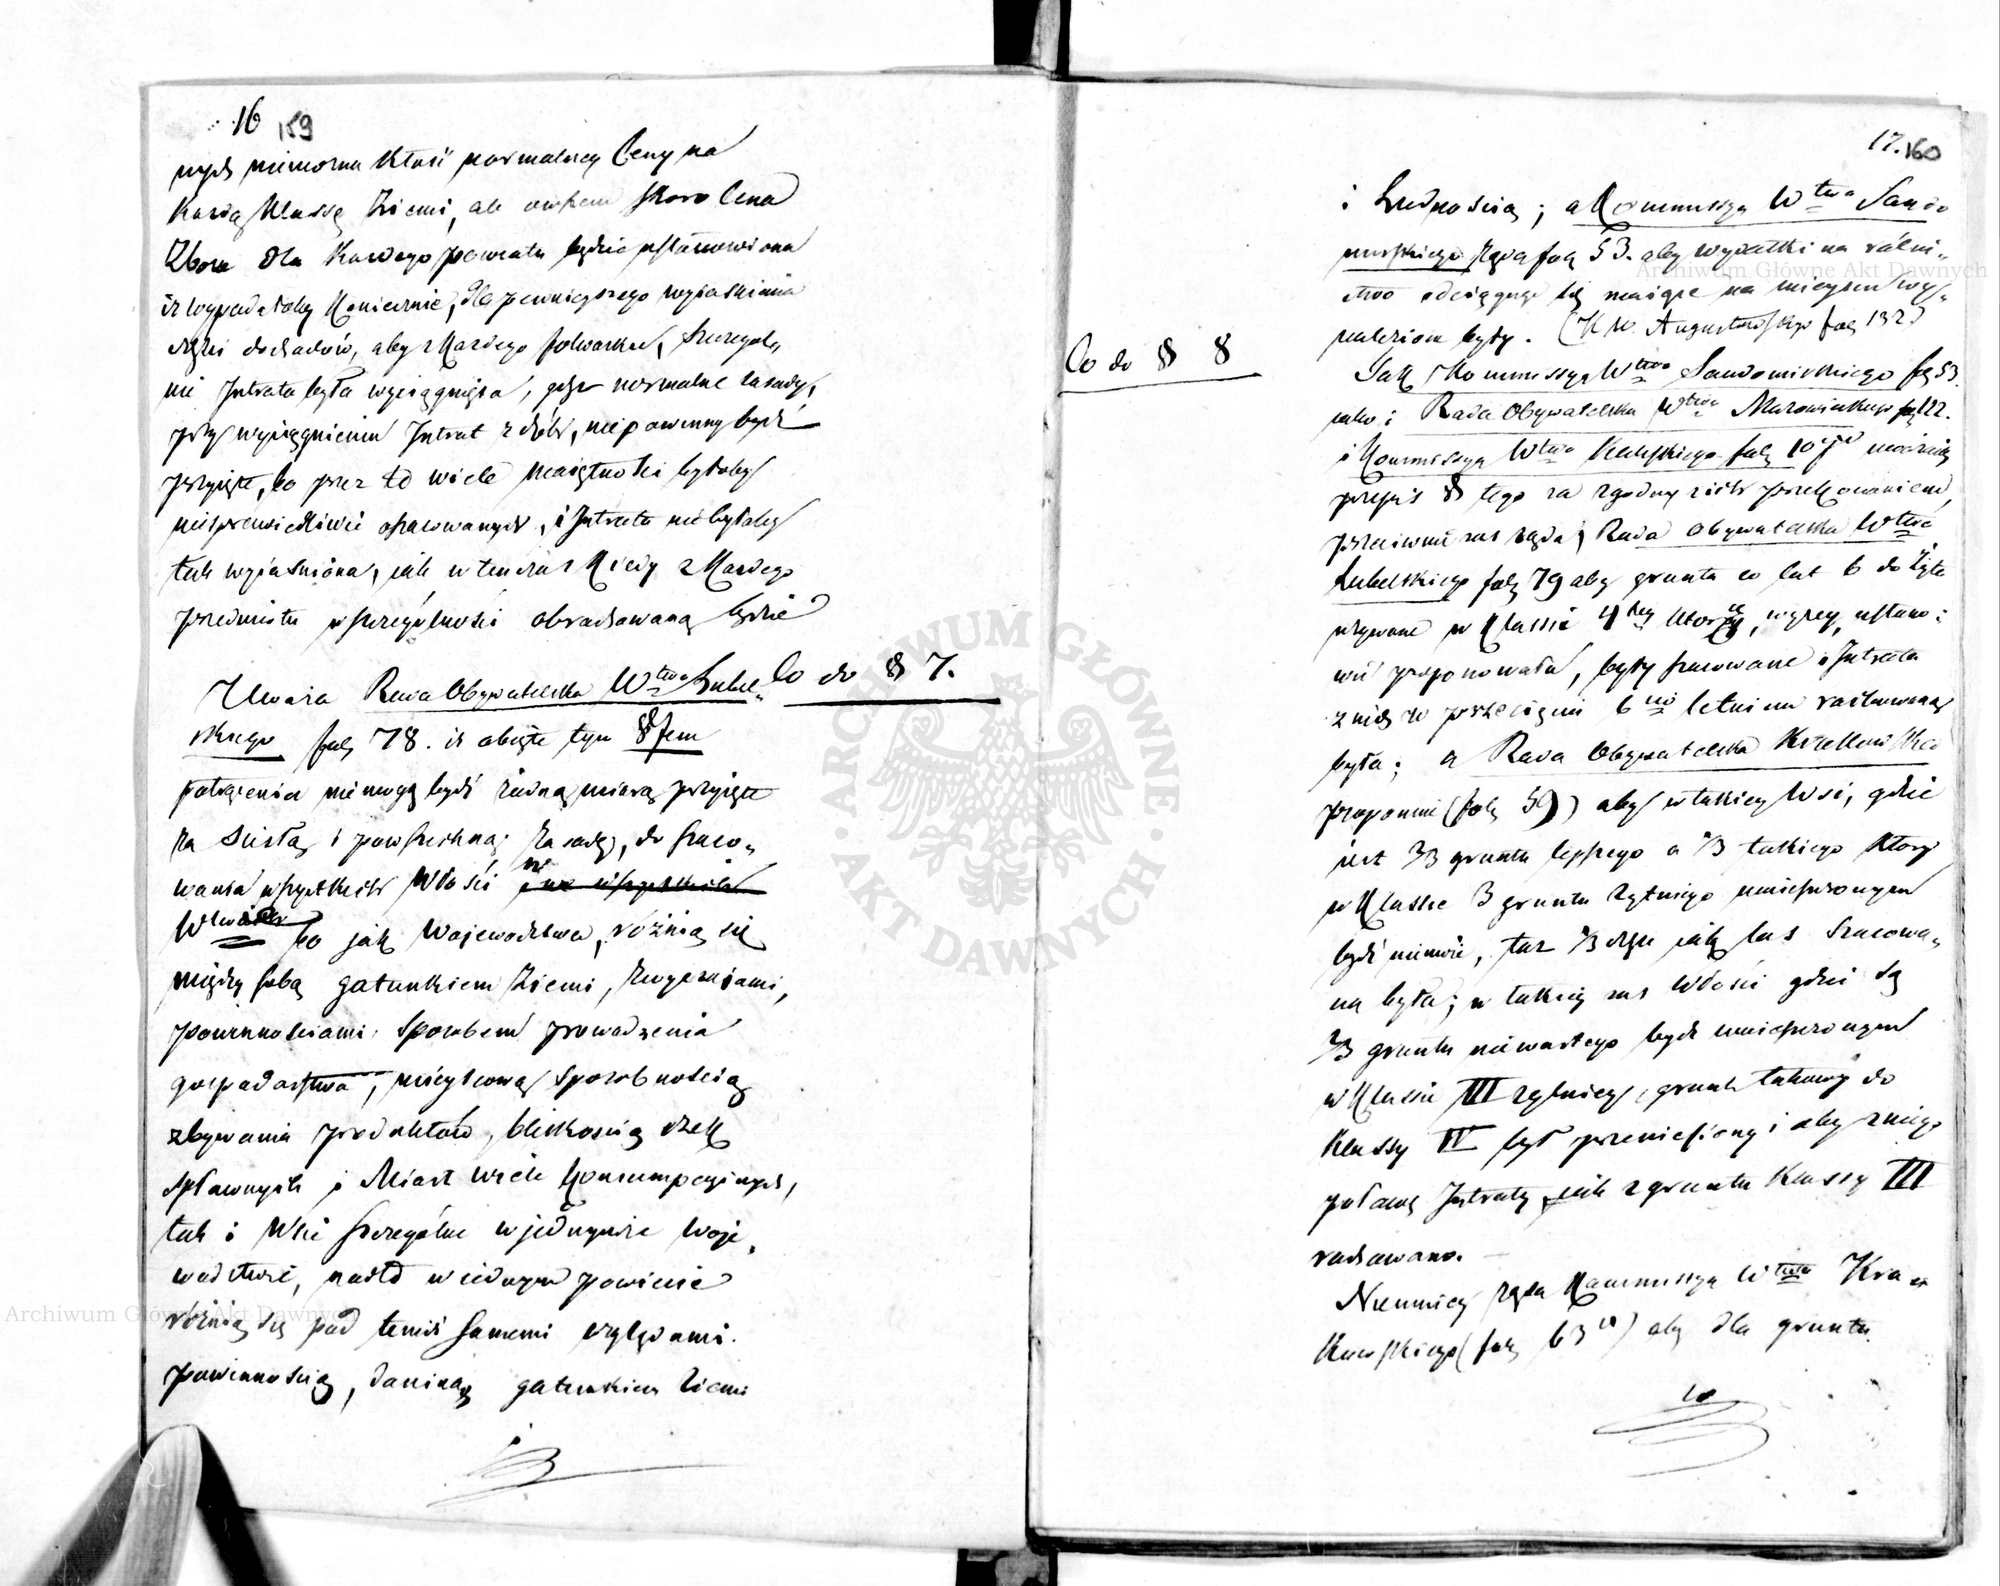 16 159
nych niemożna kłaść normalney Ceny na
każdą Klassę Ziemi, ale owszem skoro Cena
Zboża dla każdego powiatu będzie ustanowiona
iż wypadałoby koniecznie, dla pewnieyszego wyjaśnienia
części dochodów, aby z każdego folwarku, szczegól„
nie Intrata była wyciągnięta, gdyż normalne zasady,
przy wyciągnieniu Intrat z dóbr, niepowinny bydź
przyięte, bo przez to wiele maiętności byłoby
niesprawiedliwie oszacowanych, i Intrata niebyłaby
tak wyjaśniona, jak wtenczas kiedy z każdego
przedmiotu w szczególności obrachowaną będzie
Co do § 7.
Uważa Rada Obywatelska Wtwa Lubel„
skiego fol. 78. iż objęte tym §fem
potrącenia niemogą bydź żadną miarą przyięte
za ścisłą i powszechną zasadę, do szaco„
wania wszystkich Włości we wszystkich
Wtwach bo jak Województwa, różnią się
między sobą gatunkiem Ziemi, zwyczaiami,
powinnościami sposobem prowadzenia
gospodarstwa, mieyscową sposobnością
zbywania produktów, bliskością rzek
spławnych i Miast wiele konsumpcyinych,
tak i Wsie szczególne w jednymże Woje„
wództwie, nadto w iednym powiecie
różnią się pod temiż samemi względami.
powinnością, daniną gatunkiem Ziemi
i
17. 160
i Ludnością; a Kommissya Wtwa Sando
mirskiego żąda fol. 53. aby wydatki na rolni„
ctwo odciągnąć się maiące na mieyscu wy„
nalezione były. (K.W. Augustowskiego fol. 132)
Co do § 8
Jak Kommissya Wtwa Sandomirskiego fol. 53.
jako i Rada Obywatelska Wtwa Mazowieckiego fol. 122.
i Kommissya Wtwa Kaliskiego fol. 107 uważaią
przepis § tego za zgodny z ich przekonaniem,
przeciwnie zaś żąda, Rada Obywatelska Wtwa
Lubelskiego fol. 79 aby grunta co lat 6 do Żyta
używane w Klassie 4tey którą, wyżey, ustano:
wić proponowała, były szacowane i Intrata
z nich w przecięciu 6cio letniem rachowaną
była; a Rada Obywatelska Krakowska
proponuie (fol. 59) aby w takiey Wsi, gdzie
jest 2/3 gruntu lepszego a 1/3 takiego który
w Klassie 3 gruntu żytniego umieszczonym
bydź niemoże, taż 1/3 część jak las szacowa„
na była; w takiey zaś Włości gdzie są
2/3 gruntu niewartego bydź umieszczonym
w Klassie III żytniey, grunt takowy do
Klassy IV był przeniesiony i aby z niego
połowę Intraty jak z gruntu Klassy III
rachowano.
Niemniey żąda Kommissya Wtwa Kra„
kowskiego (fol. 63) aby dla gruntu
Co